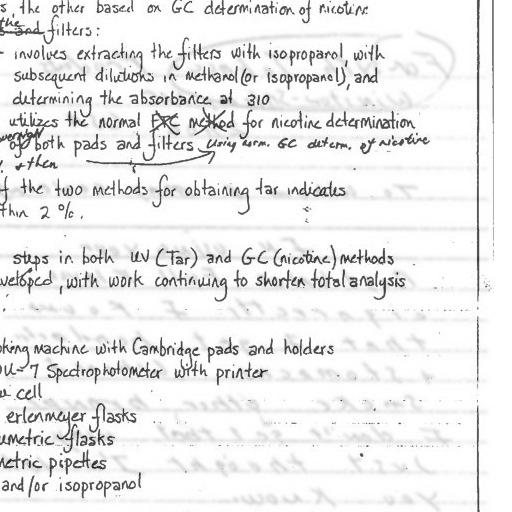 s, the other based on GC determination of nicotine
the
s and filters:
involves extracting the filters with isopropanol, with
subsequent dilutions in methanol (or isopropanol), and
determining the absorbance at 310
utilizes the normal method for nicotine determination
of both pads and filters using norm. GC determ. of nicotine
+ then
f the two methods for obtaining tar indicates
thin 2 %.
steps in both UV (Tar) and GC (nicotine) methods
veloped, with work continuing to shorten total analysis
oking machine with Cambridge pads and holders
DU-7 Spectrophotometer with printer
w cell
erlenmeyer flasks
umetric flasks
metric pipettes
and/or isopropanol